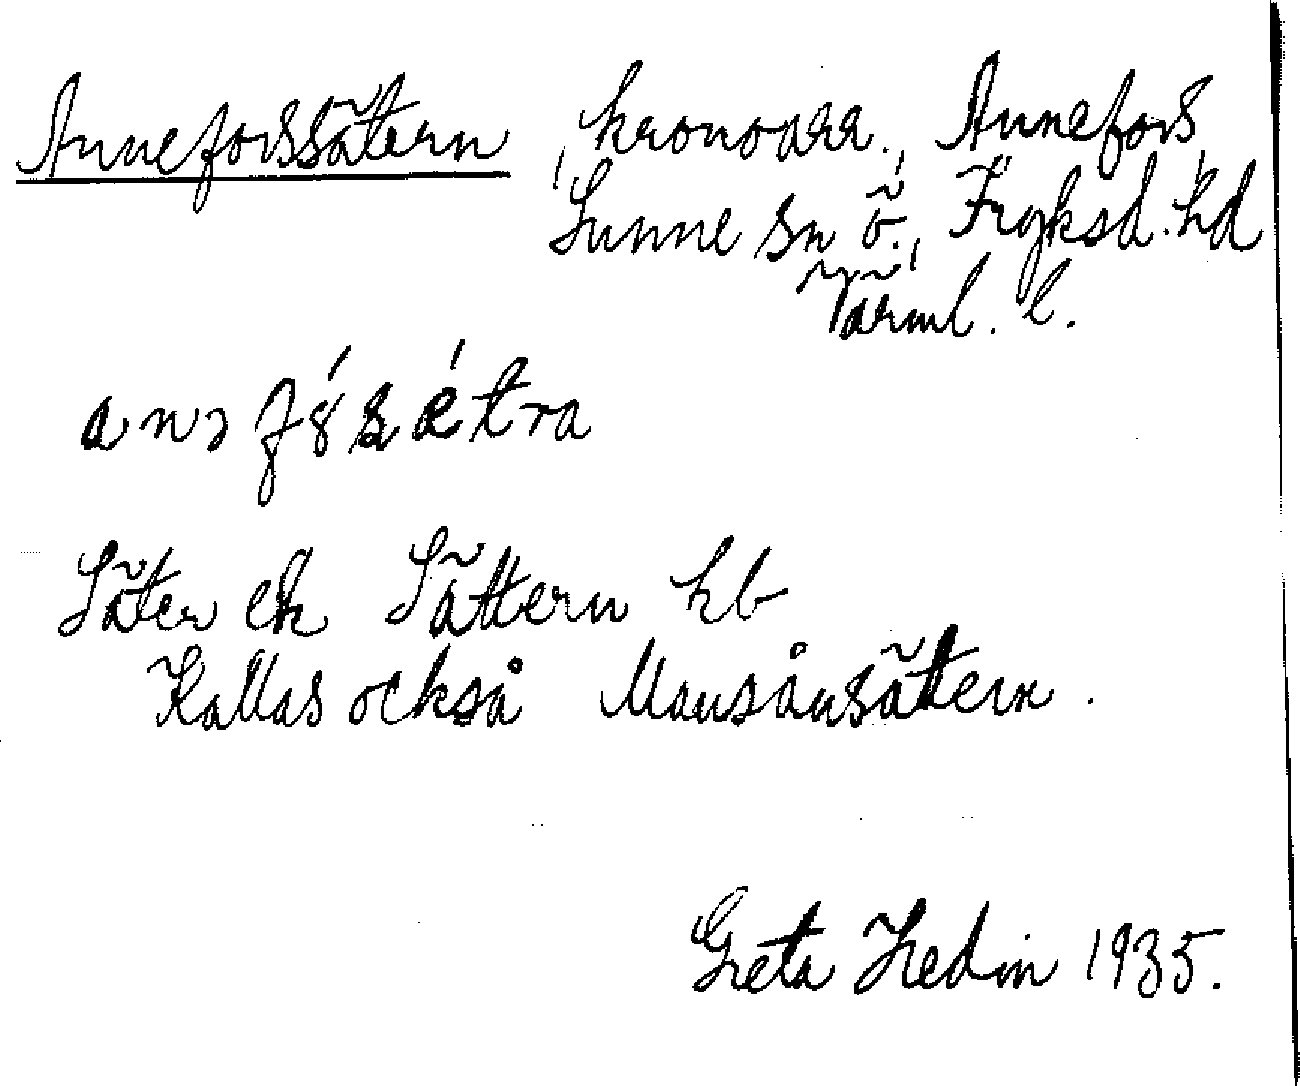 Anneforssätern, kronoarr., Annefors,
Sunne sn ö., Fryksd. hd
Värml. l.
Säter ek Sättern hb
Kallas också Mansånsättern.
Greta Hedin 1935.